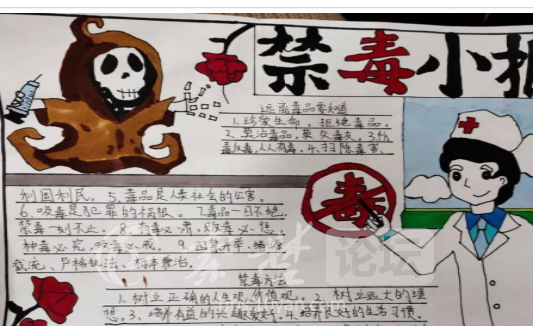 禁毒小报
远离毒品要知道
1.珍爱生命，拒绝毒品。
2.莫沾毒品，莫交毒友。3.防
毒反毒，人人有责。4.扫除毒害、
利国利民。5.毒品是人类社会的公害。
6.吸毒是犯罪的祸根。7.毒品一日不绝，
禁毒一刻不止。8.有毒必肃，贩毒必惩，
种毒必究，吸毒必戒。9.
截流、严格执法、标本兼治。
毒
禁毒方法
1.树立正确的人生观、价值观。2.树立远大的理
想。3.培养有益的兴趣爱好。4.培养良好的生活习惯。
论坛